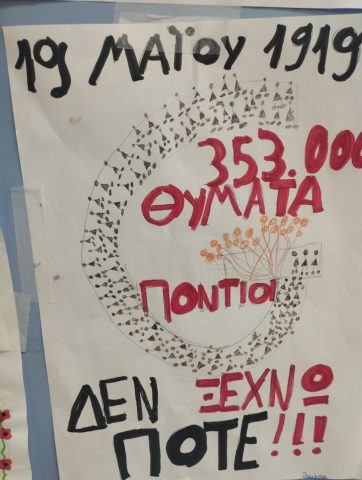 19 ΜΑΪΟΥ 1919
353.000
ΘΥΜΑΤΑ
ΠΟΝΤΙΟΙ
ΔΕΝ ΞΕΧΝΩ
ΠΟΤΕ!!!